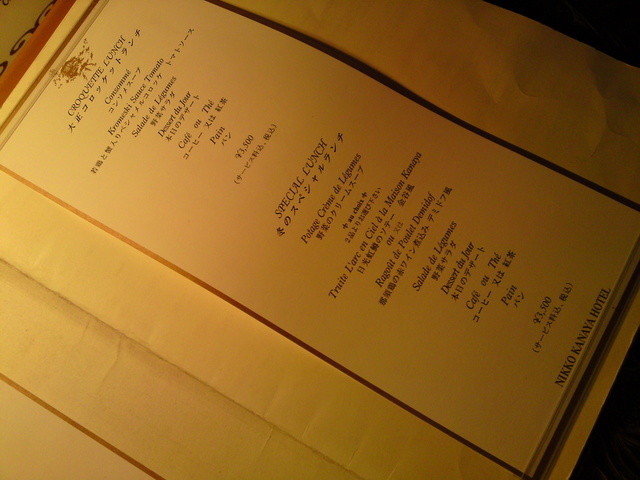 CROQUETTE LUNCH
大正コロッケットランチ
Consommé
コンソメスープ
Kromeski Sauce Tomato
若鶏と蟹入りベシャメルコロッケ トマトソース
Salade de Légumes
野菜サラダ
Dessert du Jour
本日のデザート
Café ou Thé
コーヒー 又は 紅茶
Pain
パン
¥3,500
(サービス料込、税込)
SPECIAL LUNCH
冬のスペシャルランチ
Potage Crème de Légumes
野菜のクリームスープ
2品よりお選び下さい
Truite L'arc en Ciel à la Maison Kanaya
日光虹鱒のソテー 金谷風
ou 又は
Ragoût de Poulet Demidof
那須鶏の赤ワイン煮込み デミドフ風
Salade de Légumes
野菜サラダ
Dessert du Jour
本日のデザート
Café ou Thé
コーヒー 又は 紅茶
Pain
パン
¥3,500
(サービス料込、税込)
NIKKO KANAYA HOTEL